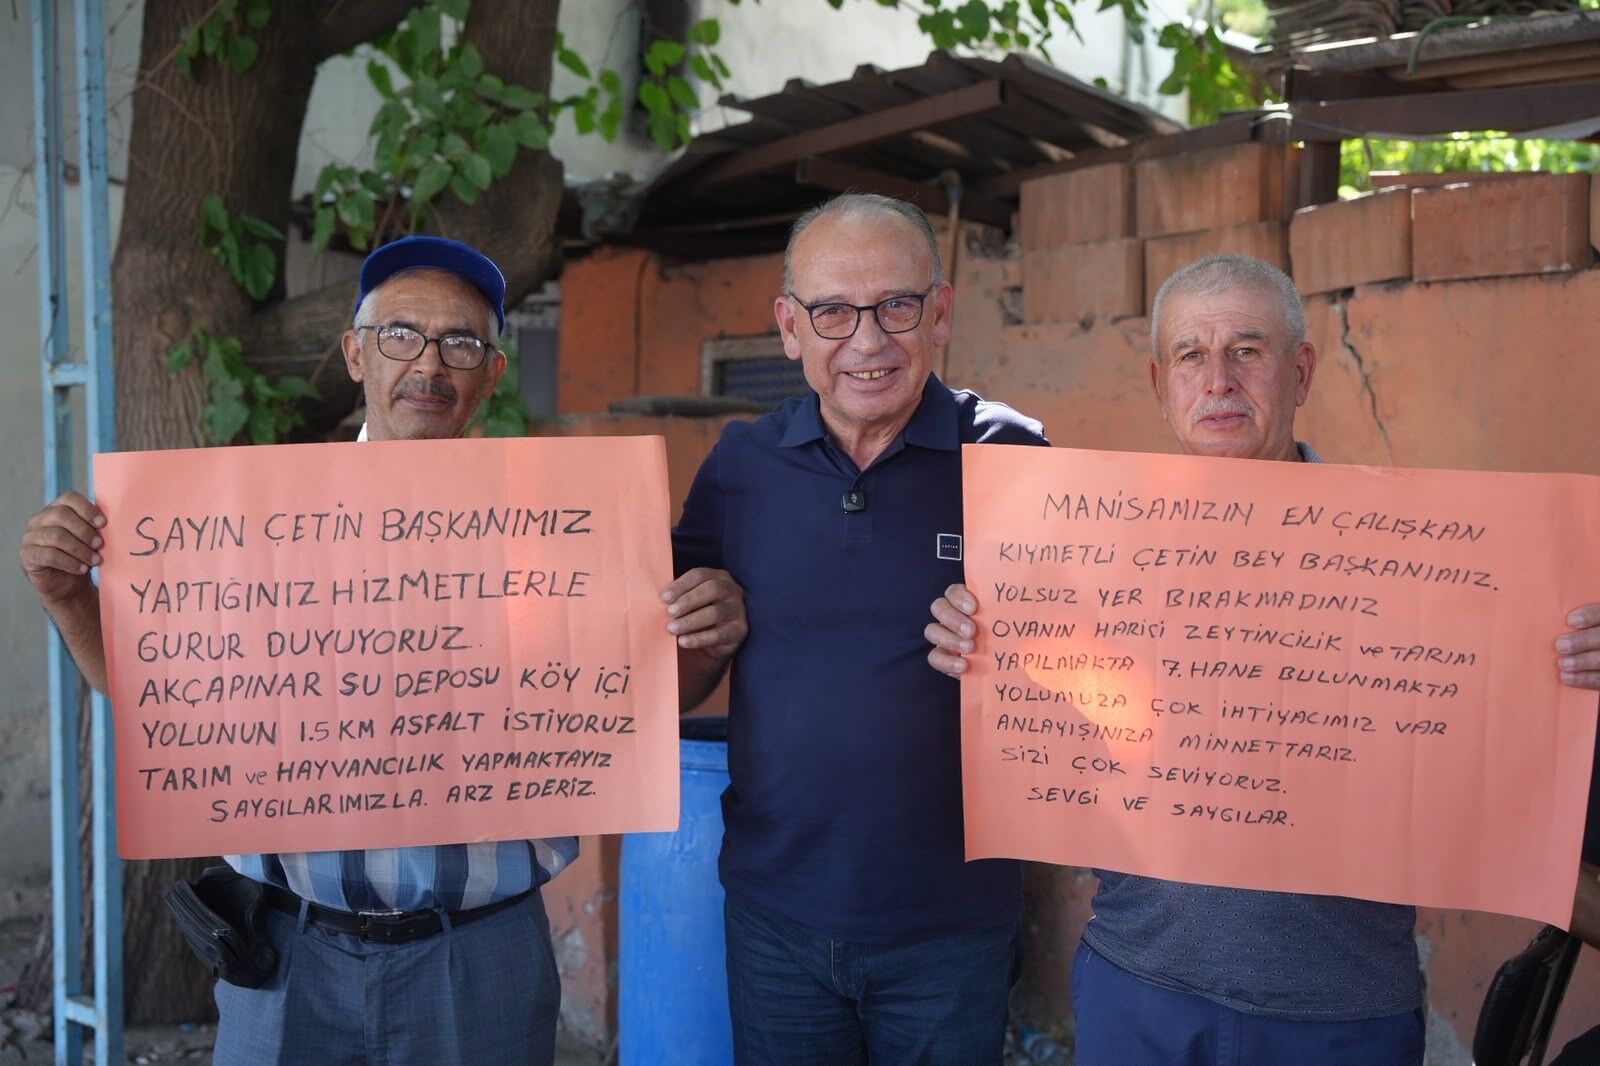 SAYIN ÇETİN BAŞKANIMIZ
YAPTIĞINIZ HİZMETLERLE
GURUR DUYUYORUZ.
AKÇAPINAR SU DEPOSU KÖY İÇİ
YOLUNUN 1.5 KM ASFALT İSTİYORUZ
TARIM ve HAYVANCILIK YAPMAKTAYIZ
SAYGILARIMIZLA. ARZ EDERİZ.
MANİSAMIZIN EN ÇALIŞKAN
KIYMETLİ ÇETİN BEY BAŞKANIMIZ.
YOLSUZ YER BIRAKMADINIZ
OVANIN HARİÇİ ZEYTİNCİLİK ve TARIM
YAPILMAKTA 7. HANE BULUNMAKTA
YOLUMUZA ÇOK İHTİYACIMIZ VAR
ANLAYIŞINIZA MİNNETTARIZ.
SİZİ ÇOK SEVİYORUZ.
SEVGİ VE SAYGILAR.